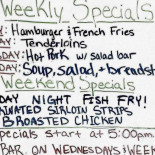 Weekly Specials
Y: Hamburger & French Fries
AY: Tenderloins
DAY: Hot Pork w/ salad bar
DAY: Soup, salad, + breadst
Weekend Specials
DAY NIGHT FISH FRY!
RINATED SIRLOIN STRIPS
BROASTED CHICKEN
pecials start at 5:00pm
BAR ON WEDNESDAYS & WEEK